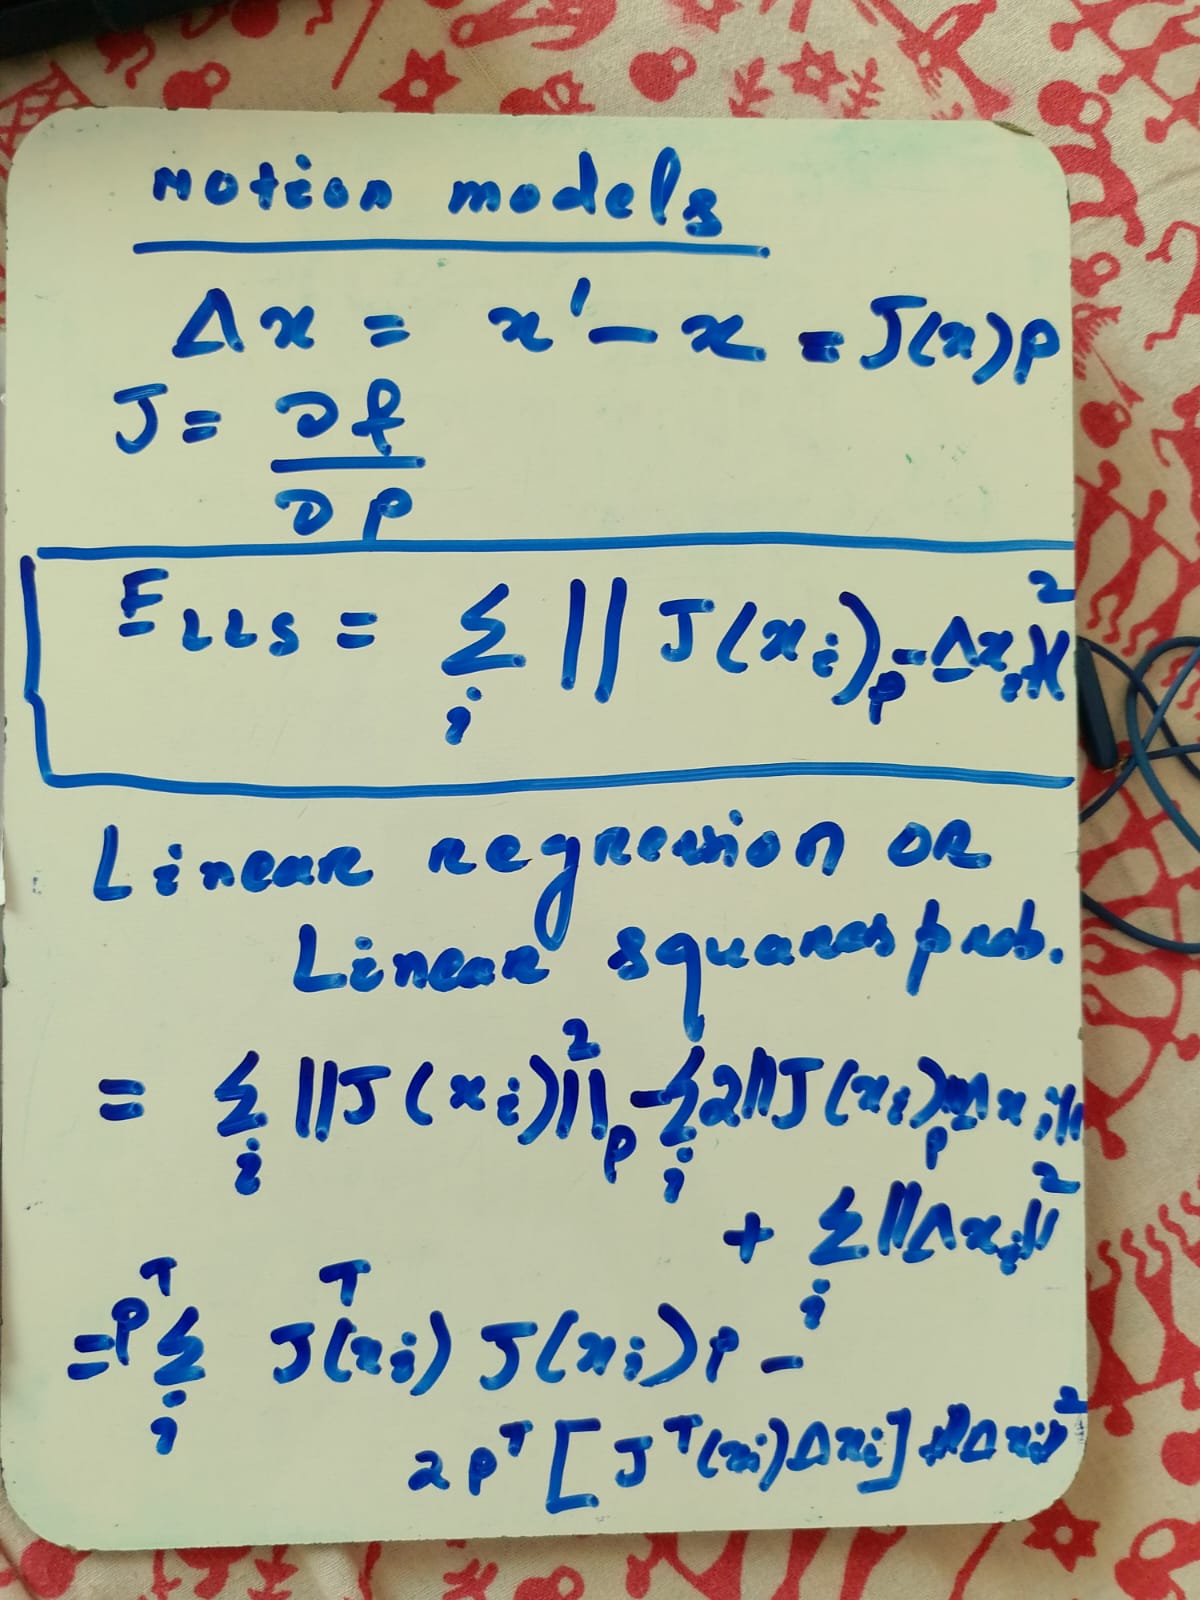 Motion models
Δx = x' - x = J(x)p
J = ∂f
∂p
E_LLS = Σ_i || J(x_i)p - Δx_i ||²
Linear regression or
Linear squares prob.
= Σ_i ||J(x_i)||²p - Σ_i 2||J(x_i)p Δx_i||
+ Σ_i ||Δx_i||²
= p^T Σ_i J^T(x_i) J(x_i)p -
2p^T [J^T(x_i)Δx_i] + ||Δx_i||²